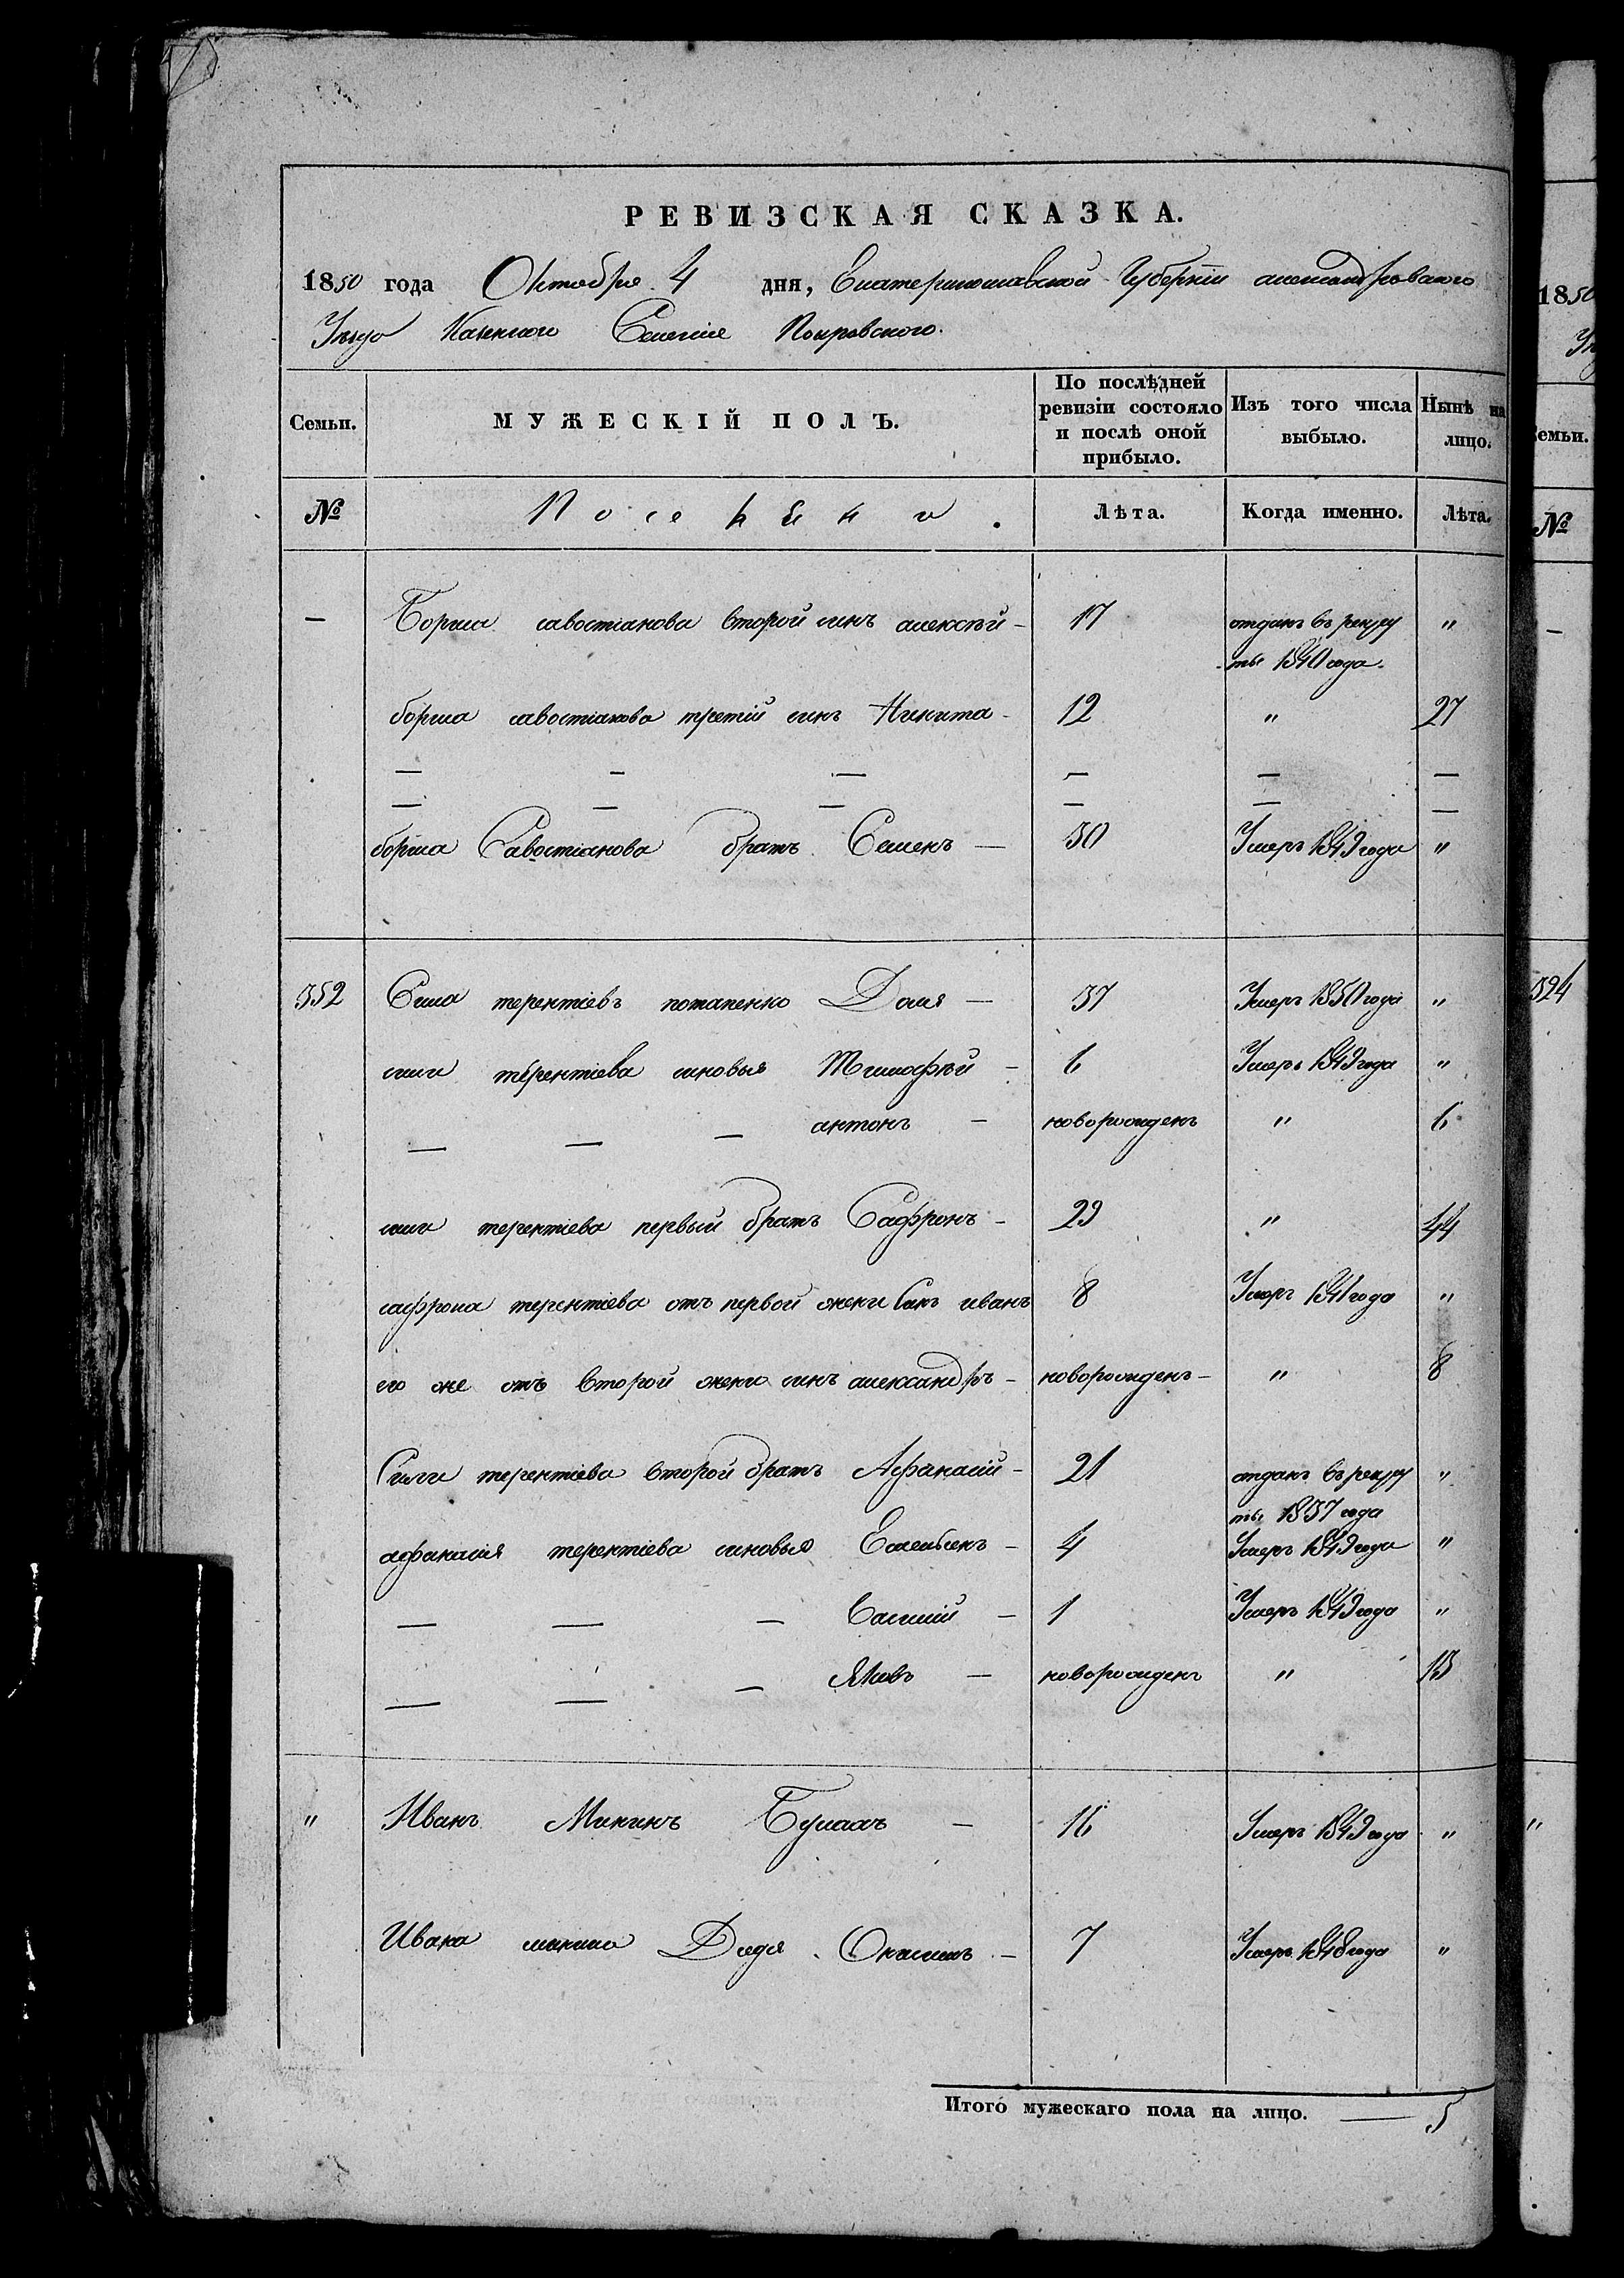 РЕВИЗСКАЯ СКАЗКА.
1850 года Октября 4 дня, Екатеринославской Губернии александровского
Уезда Казенного Селения Покровского.
Семьи. МУЖЕСКІЙ ПОЛЪ. По послѣдней ревизіи состояло и послѣ оной прибыло. Изъ того числа выбыло. Нынѣ на лицо.
№ Лѣта. Когда именно. Лѣта.
— савостіанова второй синъ алексѣй — 17 отданъ въ рекру "
ты 1840 года.
савостіанова третій синъ Никита — 12 " 27
— — — — — —
— — — — — —
Савостіанова братъ Семенъ — 30 Умеръ 1849 года "
352 Сила терентіевъ потапенко — 37 Умеръ 1850 года "
сили терентіева синовья Тимофѣй — 6 Умеръ 1849 года "
— — — антонъ — новорожденъ " 6
сили терентіева первый братъ Сафронъ — 29 " 44
сафрона терентіева отъ первой жени Синъ иванъ 8 Умеръ 1841 года "
его же отъ второй жени синъ александръ — новорожденъ — " 8
Сили терентіева второй братъ Афанасій — 21 отданъ въ рекру "
ты 1837 года
афанасія терентіева синовья — 4 Умеръ 1849 года "
— — — Василій — 1 Умеръ 1849 года "
— — — Яковъ — новорожденъ " 13
" Иванъ Микинъ — 16 Умеръ 1849 года "
Ивана микина Дядя — 7 Умеръ 1848 года "
Итого мужескаго пола на лицо. — 5
1850
Семьи.
№
—
324
"